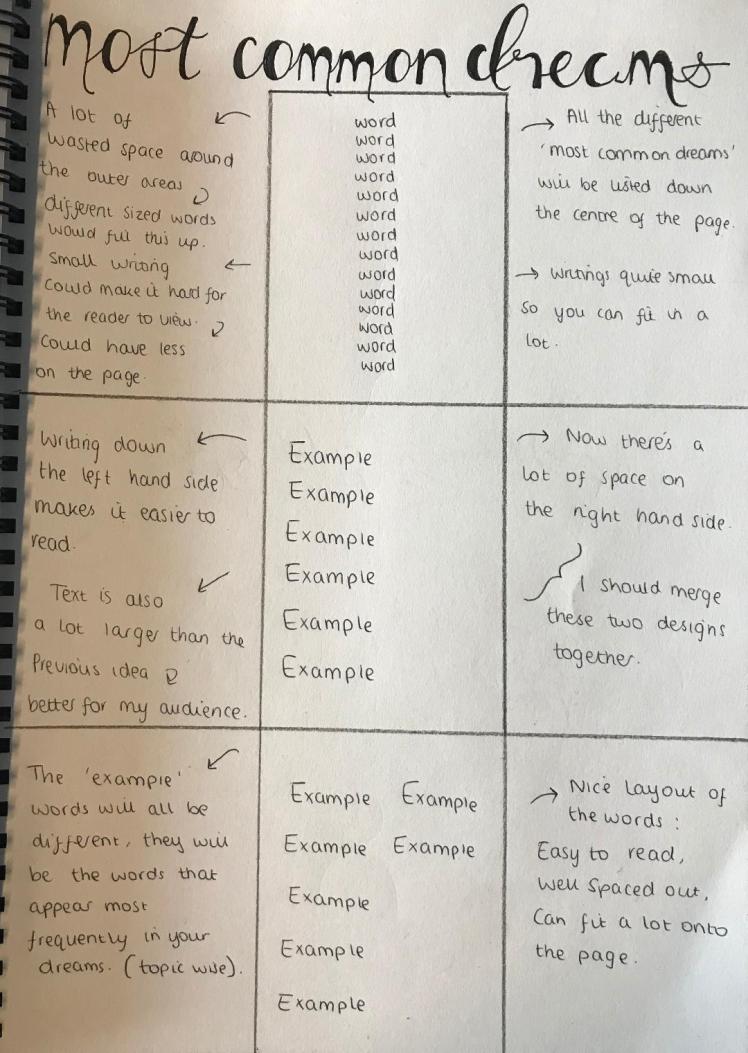 most common dreams
A lot of
wasted space around
the outer areas
different sized words
would fill this up.
small writing
could make it hard for
the reader to view.
could have less
on the page.
word
word
word
word
word
word
word
word
word
word
word
word
word
word
All the different
'most common dreams'
will be listed down
the centre of the page.
writings quite small
so you can fit in a
lot.
Writing down
the left hand side
makes it easier to
read.
Text is also
a lot larger than the
Previous idea
better for my audience.
Example
Example
Example
Example
Example
Example
Now there's a
lot of space on
the right hand side.
I should merge
these two designs
together.
The 'example'
words will all be
different, they will
be the words that
appear most
frequently in your
dreams. (topic wise).
Example Example
Example Example
Example
Example
Example
Nice layout of
the words:
Easy to read,
well spaced out,
Can fit a lot onto
the page.